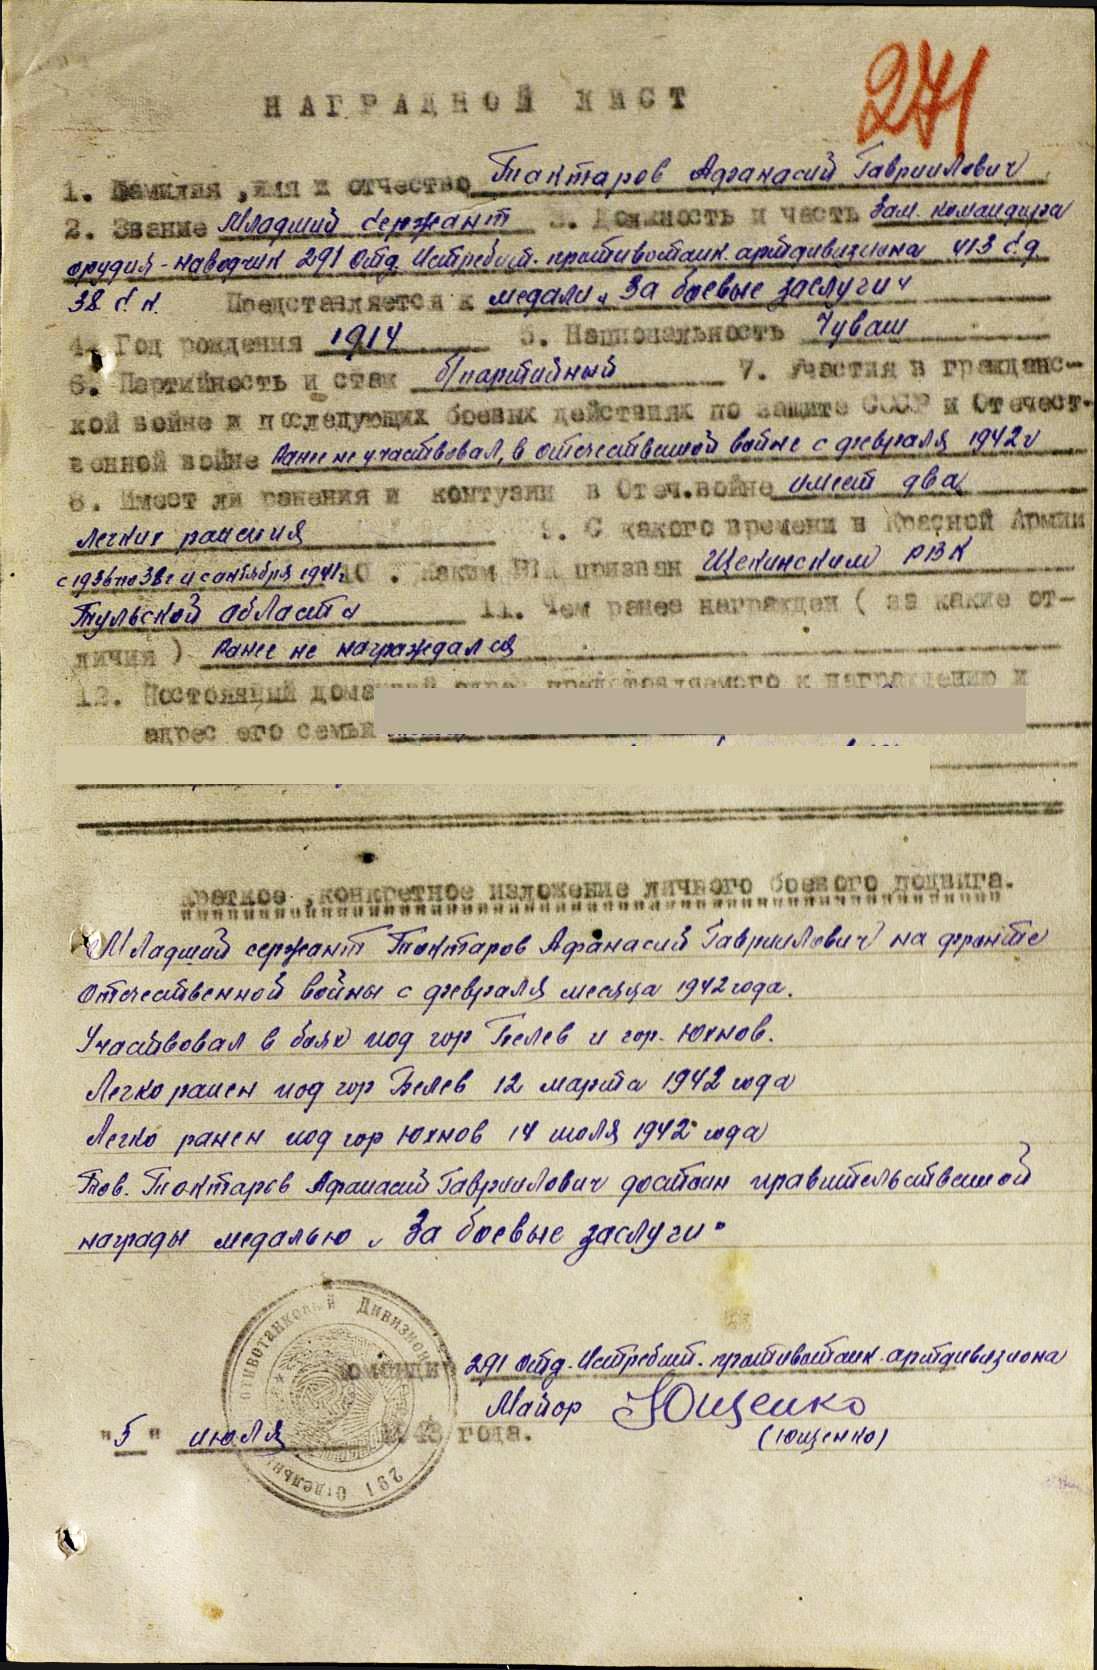 271
НАГРАДНОЙ ЛИСТ
1. Фамилия, имя и отчество Токтаров Афанасий Гавриилович
2. Звание Младший сержант 3. Должность и часть Зам. командира
орудия - наводчик 291 отд. Истребит. противотанк. артдивизиона 413 с.д.
38 с.к. Представляется к медали „За боевые заслуги"
4. Год рождения 1914 5. Национальность Чуваш
6. Партийность и стаж б/партийный 7. Участия в гражданс-
кой войне и последующих боевых действиях по защите СССР и Отечест-
венной войне Ранее не участвовал, в отечественной войне с февраля 1942 г
8. Имеет ли ранения и контузии в Отеч.войне имеет два
легких ранения 9. С какого времени в Красной Армии
с 1936 по 38 г и с октября 1941 г. 10. Каким РВК призван Щекинским РВК
Тульской области 11. Чем ранее награжден ( за какие от-
личия ) Ранее не награждался
12. Постоянный домашний адрес представляемого к награждению и
адрес его семьи
Краткое ,конкретное изложение личного боевого подвига.
Младший сержант Токтаров Афанасий Гавриилович на фронте
Отечественной войны с февраля месяца 1942 года.
Участвовал в боях под гор Белев и гор. Юхнов.
Легко ранен под гор Белев 12 марта 1942 года
Легко ранен под гор Юхнов 14 июля 1942 года
Тов. Токтаров Афанасий Гавриилович достоин правительственной
награды медалью „За боевые заслуги"
Командир 291 отд. Истребит. противотанк. артдивизиона
Майор Ющенко
(Ющенко)
"5" июля 1943 года.
противотанковый Дивизион
291 Отдельный